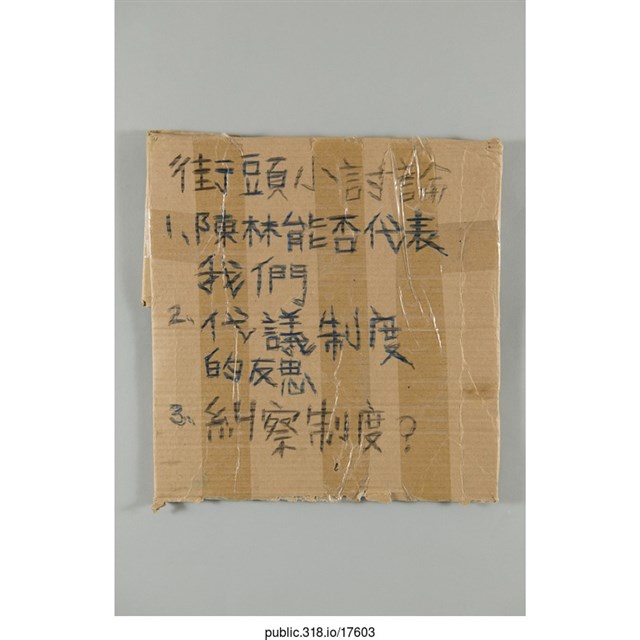 街頭小討論
1、陳林能否代表
我們
2、代議制度
的反思
3、糾察制度?
public.318.io/17603